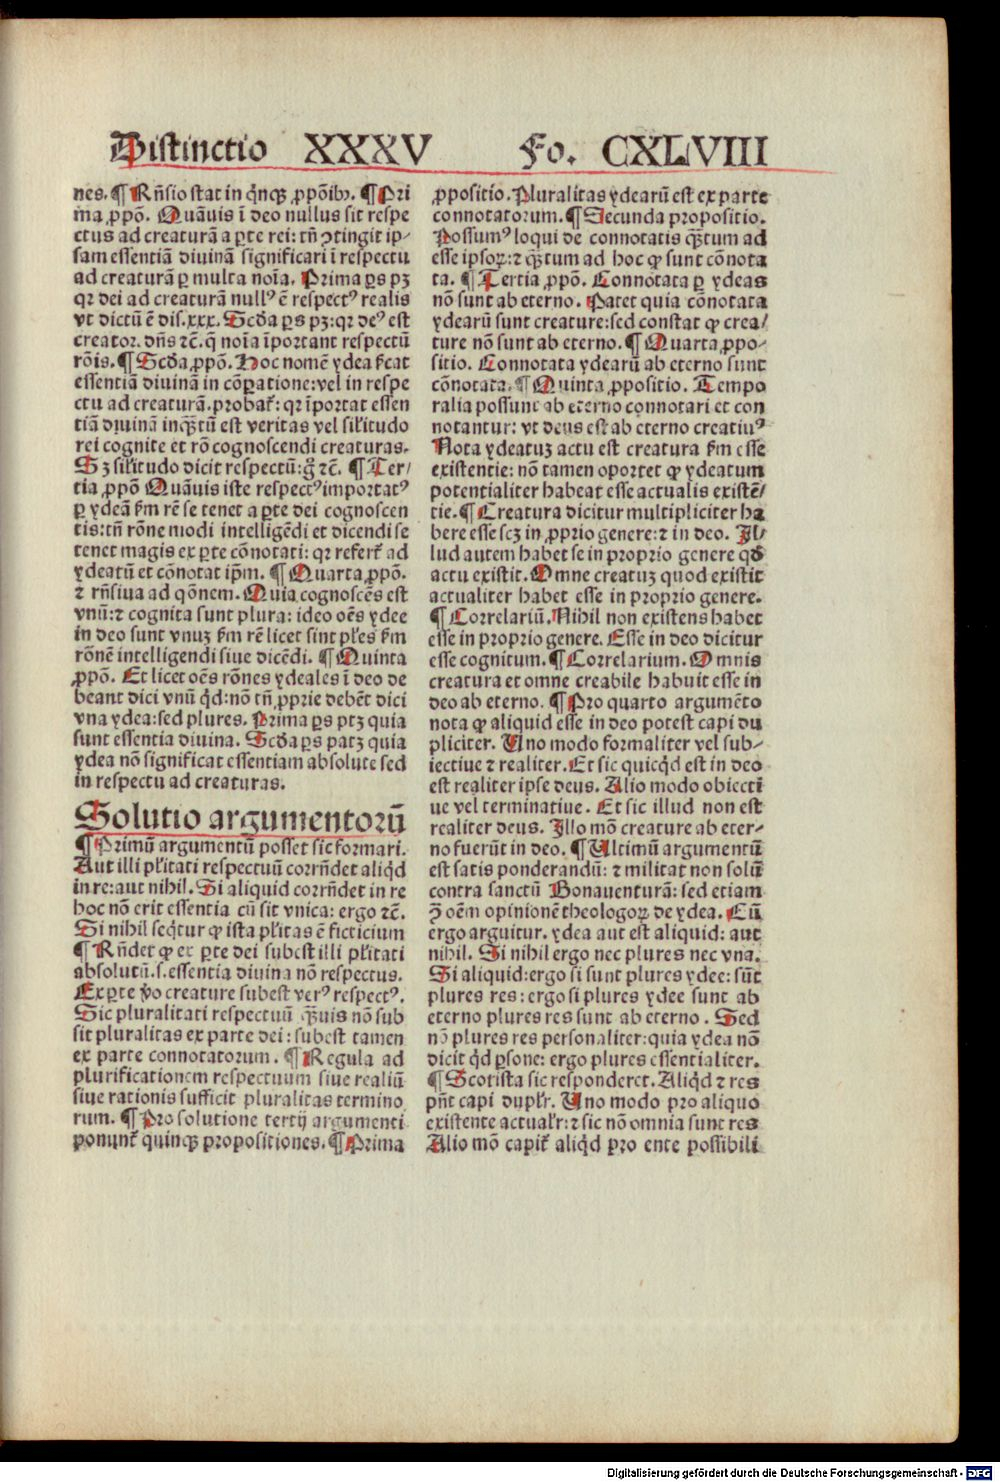 Distinctio XXXV Fo. CXLVIII
nes. ¶ Rñsio stat in q̃nqꝫ ꝓpõibꝰ. ¶ Pri
ma ꝓpõ. Quãuis ĩ deo nullus sit respe
ctus ad creaturã a ꝑte rei: tñ ꝯtingit ip-
sam essentiã diuinã significari ĩ respectu
ad creaturã ꝑ multa noĩa. Prima ꝑs pꝫ
qꝛ dei ad creaturã nullꝰ ẽ respectꝰ realis
vt dictũ ẽ dis.xxx. Scd̃a ꝑs pꝫ: qꝛ deꝰ est
creator. dñs ⁊c̃. q̃ noĩa ĩportant respectũ
rõis. ¶ Scd̃a ꝓpõ. Hoc nomẽ ydea p̃cat
essentiã diuinã in cõꝑatione: vel in respe
ctu ad creaturã. probat̃: qꝛ ĩportat essen
tiã diuinã inqꝫtũ est veritas vel sil̃itudo
rei cognite et rõ cognoscendi creaturas.
Sꝫ sil̃itudo dicit respectũ: g̊ ⁊c̃. ¶ Ter/
tia ꝓpõ Quãuis iste respectꝰ importatꝰ
ꝑ ydeã ẜm rẽ se tenet a ꝑte dei cognoscen
tis: tñ rõne modi intelligẽdi et dicendi se
tenet magis ex ꝑte cõnotati: qꝛ refert̃ ad
ydeatũ et cõnotat ip̃m. ¶ Quarta ꝓpõ.
⁊ rñsiua ad qõnem. Quia cognoscẽs est
vnũ: ⁊ cognita sunt plura: ideo oẽs ydee
in deo sunt vnuꝫ ẜm rẽ licet sint pl̃es ẜm
rõnẽ intelligendi siue dicẽdi. ¶ Quinta
ꝓpõ. Et licet oẽs rõnes ydeales ĩ deo de
beant dici vnũ qd̃: nõ tñ ꝓprie debẽt dici
vna ydea: sed plures. Prima ꝑs ptꝫ quia
sunt essentia diuina. Scd̃a ꝑs patꝫ quia
ydea nõ significat essentiam absolute sed
in respectu ad creaturas.
Solutio argumentorũ
¶ Primũ argumentũ posset sic formari.
Aut illi pl̃itati respectuũ corrñdet aliqd̃
in re: aut nihil. Si aliquid corrñdet in re
hoc nõ erit essentia cũ sit vnica: ergo ⁊c̃.
Si nihil seq̃tur ꝙ ista pl̃itas ẽ ficticium
¶ Rñdet ꝙ ex ꝑte dei subest illi pl̃itati
absolutũ .s. essentia diuina nõ respectus.
Ex ꝑte v̊o creature subest verꝰ respectꝰ.
Sic pluralitati respectuũ qꝫuis nõ sub
sit pluralitas ex parte dei: subest tamen
ex parte connotatorum. ¶ Regula ad
plurificationem respectuum siue realiũ
siue rationis sufficit pluralitas termino
rum. ¶ Pro solutione tertij argumenti
ponunt̃ quinqꝫ propositiones. ¶ Prima
ꝓpositio. Pluralitas ydearũ est ex parte
connotatorum. ¶ Secunda propositio.
Possumꝰ loqui de connotatis qꝫtum ad
esse ipsoꝝ: ⁊ qꝫtum ad hoc ꝙ sunt cõnota
ta. ¶ Tertia ꝓpõ. Connotata ꝑ ydeas
nõ sunt ab eterno. Patet quia cõnotata
ydearũ sunt creature: sed constat ꝙ crea/
ture nõ sunt ab eterno. ¶ Quarta ꝓpo-
sitio. Connotata ydearũ ab eterno sunt
cõnotata. ¶ Quinta ꝓpositio. Tempo
ralia possunt ab eterno connotari et con
notantur: vt deus est ab eterno creatiuꝰ
Nota ydeatuꝫ actu est creatura ẜm esse
existentie: nõ tamen oportet ꝙ ydeatum
potentialiter habeat esse actualis existẽ/
tie. ¶ Creatura dicitur multipliciter ha
bere esse scꝫ in ꝓprio genere: ⁊ in deo. Il-
lud autem habet se in proprio genere qd̃
actu existit. Omne creatuꝫ quod existit
actualiter habet esse in proprio genere.
¶ Correlariũ. Nihil non existens habet
esse in proprio genere. Esse in deo dicitur
esse cognitum. ¶ Correlarium. Omnis
creatura et omne creabile habuit esse in
deo ab eterno. ¶ Pro quarto argumẽto
nota ꝙ aliquid esse in deo potest capi du
pliciter. Uno modo formaliter vel sub-
iectiue ⁊ realiter. Et sic quicqd̃ est in deo
est realiter ipse deus. Alio modo obiecti
ue vel terminatiue. Et sic illud non est
realiter deus. Illo mõ creature ab eter-
no fuerũt in deo. ¶ Ultimũ argumentũ
est satis ponderandũ: ⁊ militat non solũ
contra sanctũ Bonauenturã: sed etiam
ꝯ̃ oẽm opinionẽ theologoꝝ de ydea. Cũ
ergo arguitur. ydea aut est aliquid: aut
nihil. Si nihil ergo nec plures nec vna.
Si aliquid: ergo si sunt plures ydee: sũt
plures res: ergo si plures ydee sunt ab
eterno plures res sunt ab eterno. Sed
nõ plures res personaliter: quia ydea nõ
dicit qd̃ ꝑsone: ergo plures essentialiter.
¶ Scotista sic responderet. Aliqd̃ ⁊ res
pñt capi dupl̃r. Uno modo pro aliquo
existente actual̃r: ⁊ sic nõ omnia sunt res
Alio mõ capit̃ aliqd̃ pro ente possibili
Digitalisierung gefördert durch die Deutsche Forschungsgemeinschaft - DFG